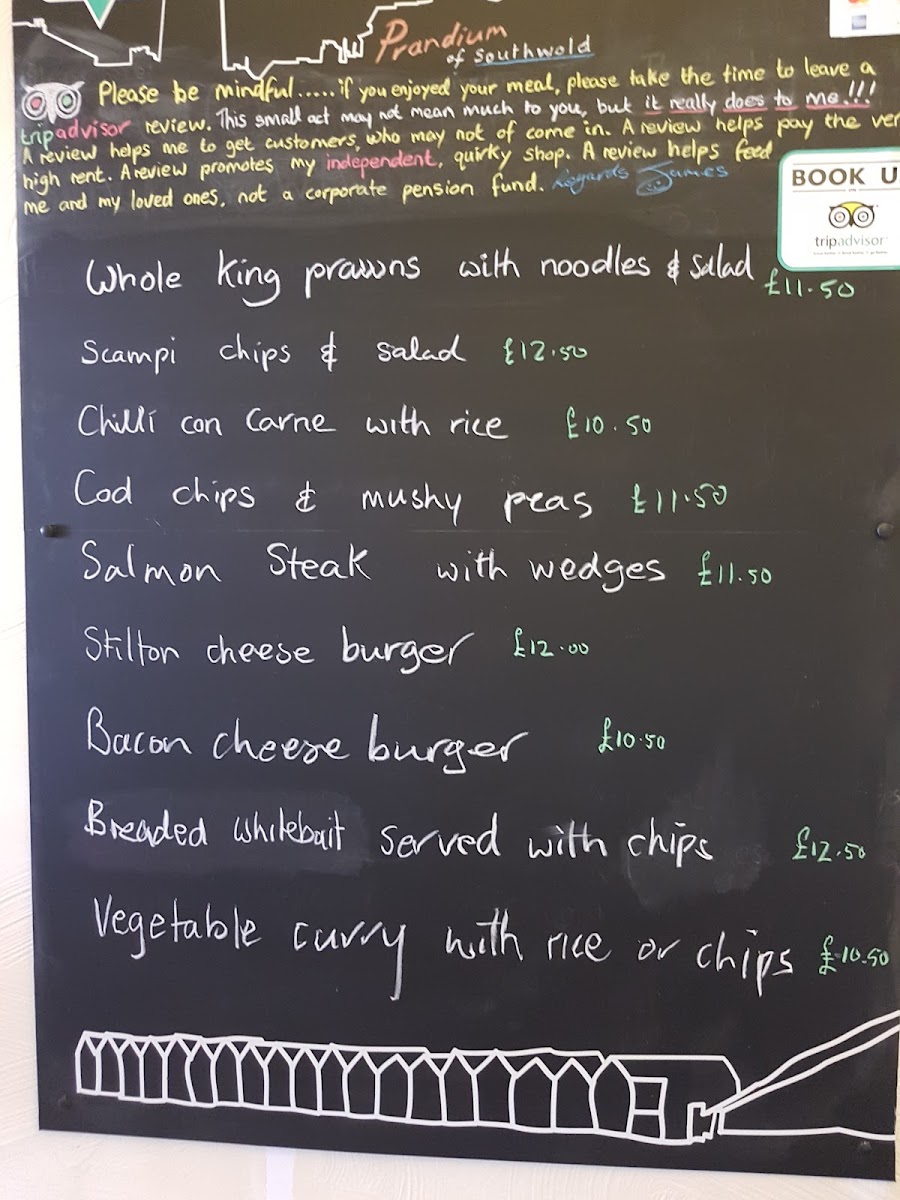 Prandium
of Southwold
Please be mindful.....if you enjoyed your meal, please take the time to leave a
tripadvisor review. This small act may not mean much to you, but it really does to me!!!
A review helps me to get customers, who may not of come in. A review helps pay the ver
high rent. A review promotes my independent, quirky shop. A review helps feed
me and my loved ones, not a corporate pension fund. Regards James
BOOK U
tripadvisor
Whole King prawns with noodles & salad £11.50
Scampi chips & salad £12.50
Chilli con Carne with rice £10.50
Cod chips & mushy peas £11.50
Salmon Steak with wedges £11.50
Stilton cheese burger £12.00
Bacon cheese burger £10.50
Breaded whitebait served with chips £12.50
Vegetable curry with rice or chips £10.50